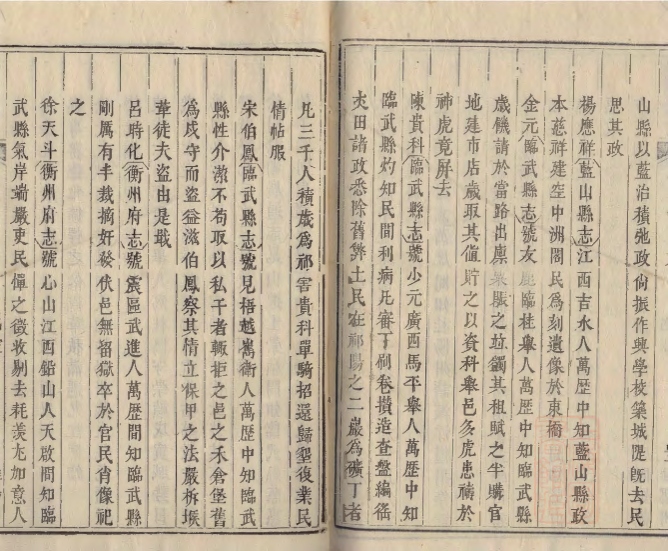 山縣以藍治積弛政尙振作興學校築城隄旣去民
思其政
楊應祥藍山縣志江西吉水人萬歷中知藍山縣政
本慈祥建空中洲閣民爲刻遺像於東橋
金元臨武縣志號友 臨桂舉人萬歷中知臨武縣
歲饑請於當路出廩 賑之 蠲其租賦之半購官
地建市店歲取其值貯之以資科舉邑多虎患禱於
神虎竟屏去
陳貴科臨武縣志號少元廣西馬平舉人萬歷中知
臨武縣灼知民間利病凡審丁刷卷攢造查盤編徭
丈田諸政悉除舊弊土民在祁陽之二巖爲礦丁者
凡三千人積歲爲祁害貴科單騎招還歸墾復業民
情帖服
宋伯鳳臨武縣志號見梧越嶲衛人萬歷中知臨武
縣性介潔不苟取以私干者輒拒之邑之禾倉堡舊
爲戍守而盜益滋伯鳳察其情立保甲之法嚴柝堠
華徒夫盜由是戢
呂時化衡州府志號震區武進人萬歷間知臨武縣
剛厲有丰裁摘奸發伏邑無留獄卒於官民肖像祀
之
徐天斗衡州府志號心山江西鉛山人天啟間知臨
武縣氣岸端嚴吏民憚之徵收剔去耗羨尤加意人